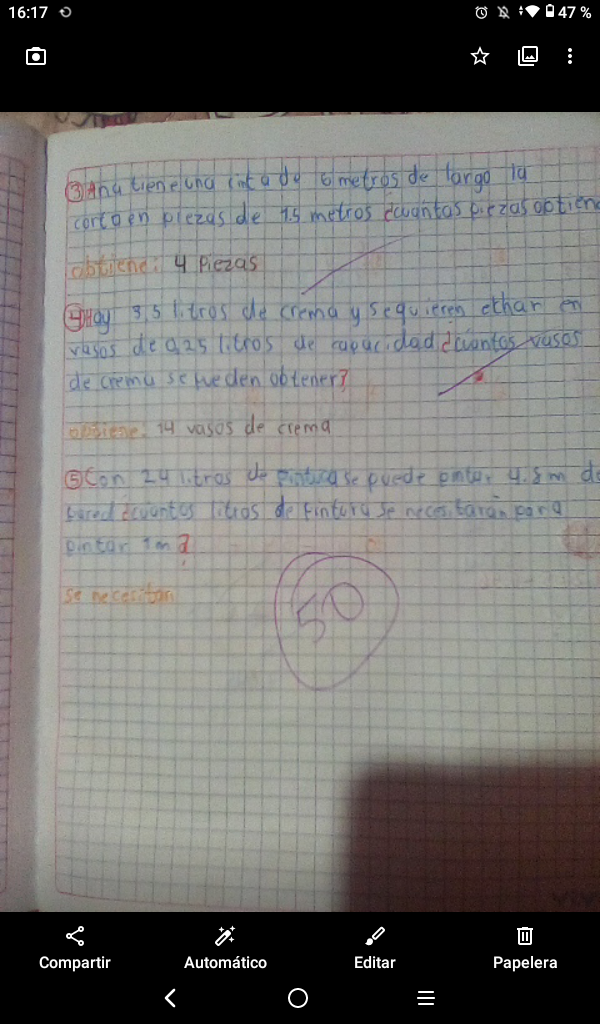 16:17
47 %
③ Ana tiene una cinta de 6 metros de largo la
corto en piezas de 1.5 metros ¿cuantas piezas obtiene
obtiene: 4 Piezas
④ Hay 3,5 litros de crema y se quieren echar en
vasos de 0,25 litros de capacidad ¿cuantos vasos
de crema se pueden obtener?
obtiene: 14 vasos de crema
⑤ Con 24 litros de pintura se puede pintar 4.8 m de
pared ¿cuantos litros de pintura se necesitaran para
pintar 1m?
se necesitan
50
Compartir
Automático
Editar
Papelera